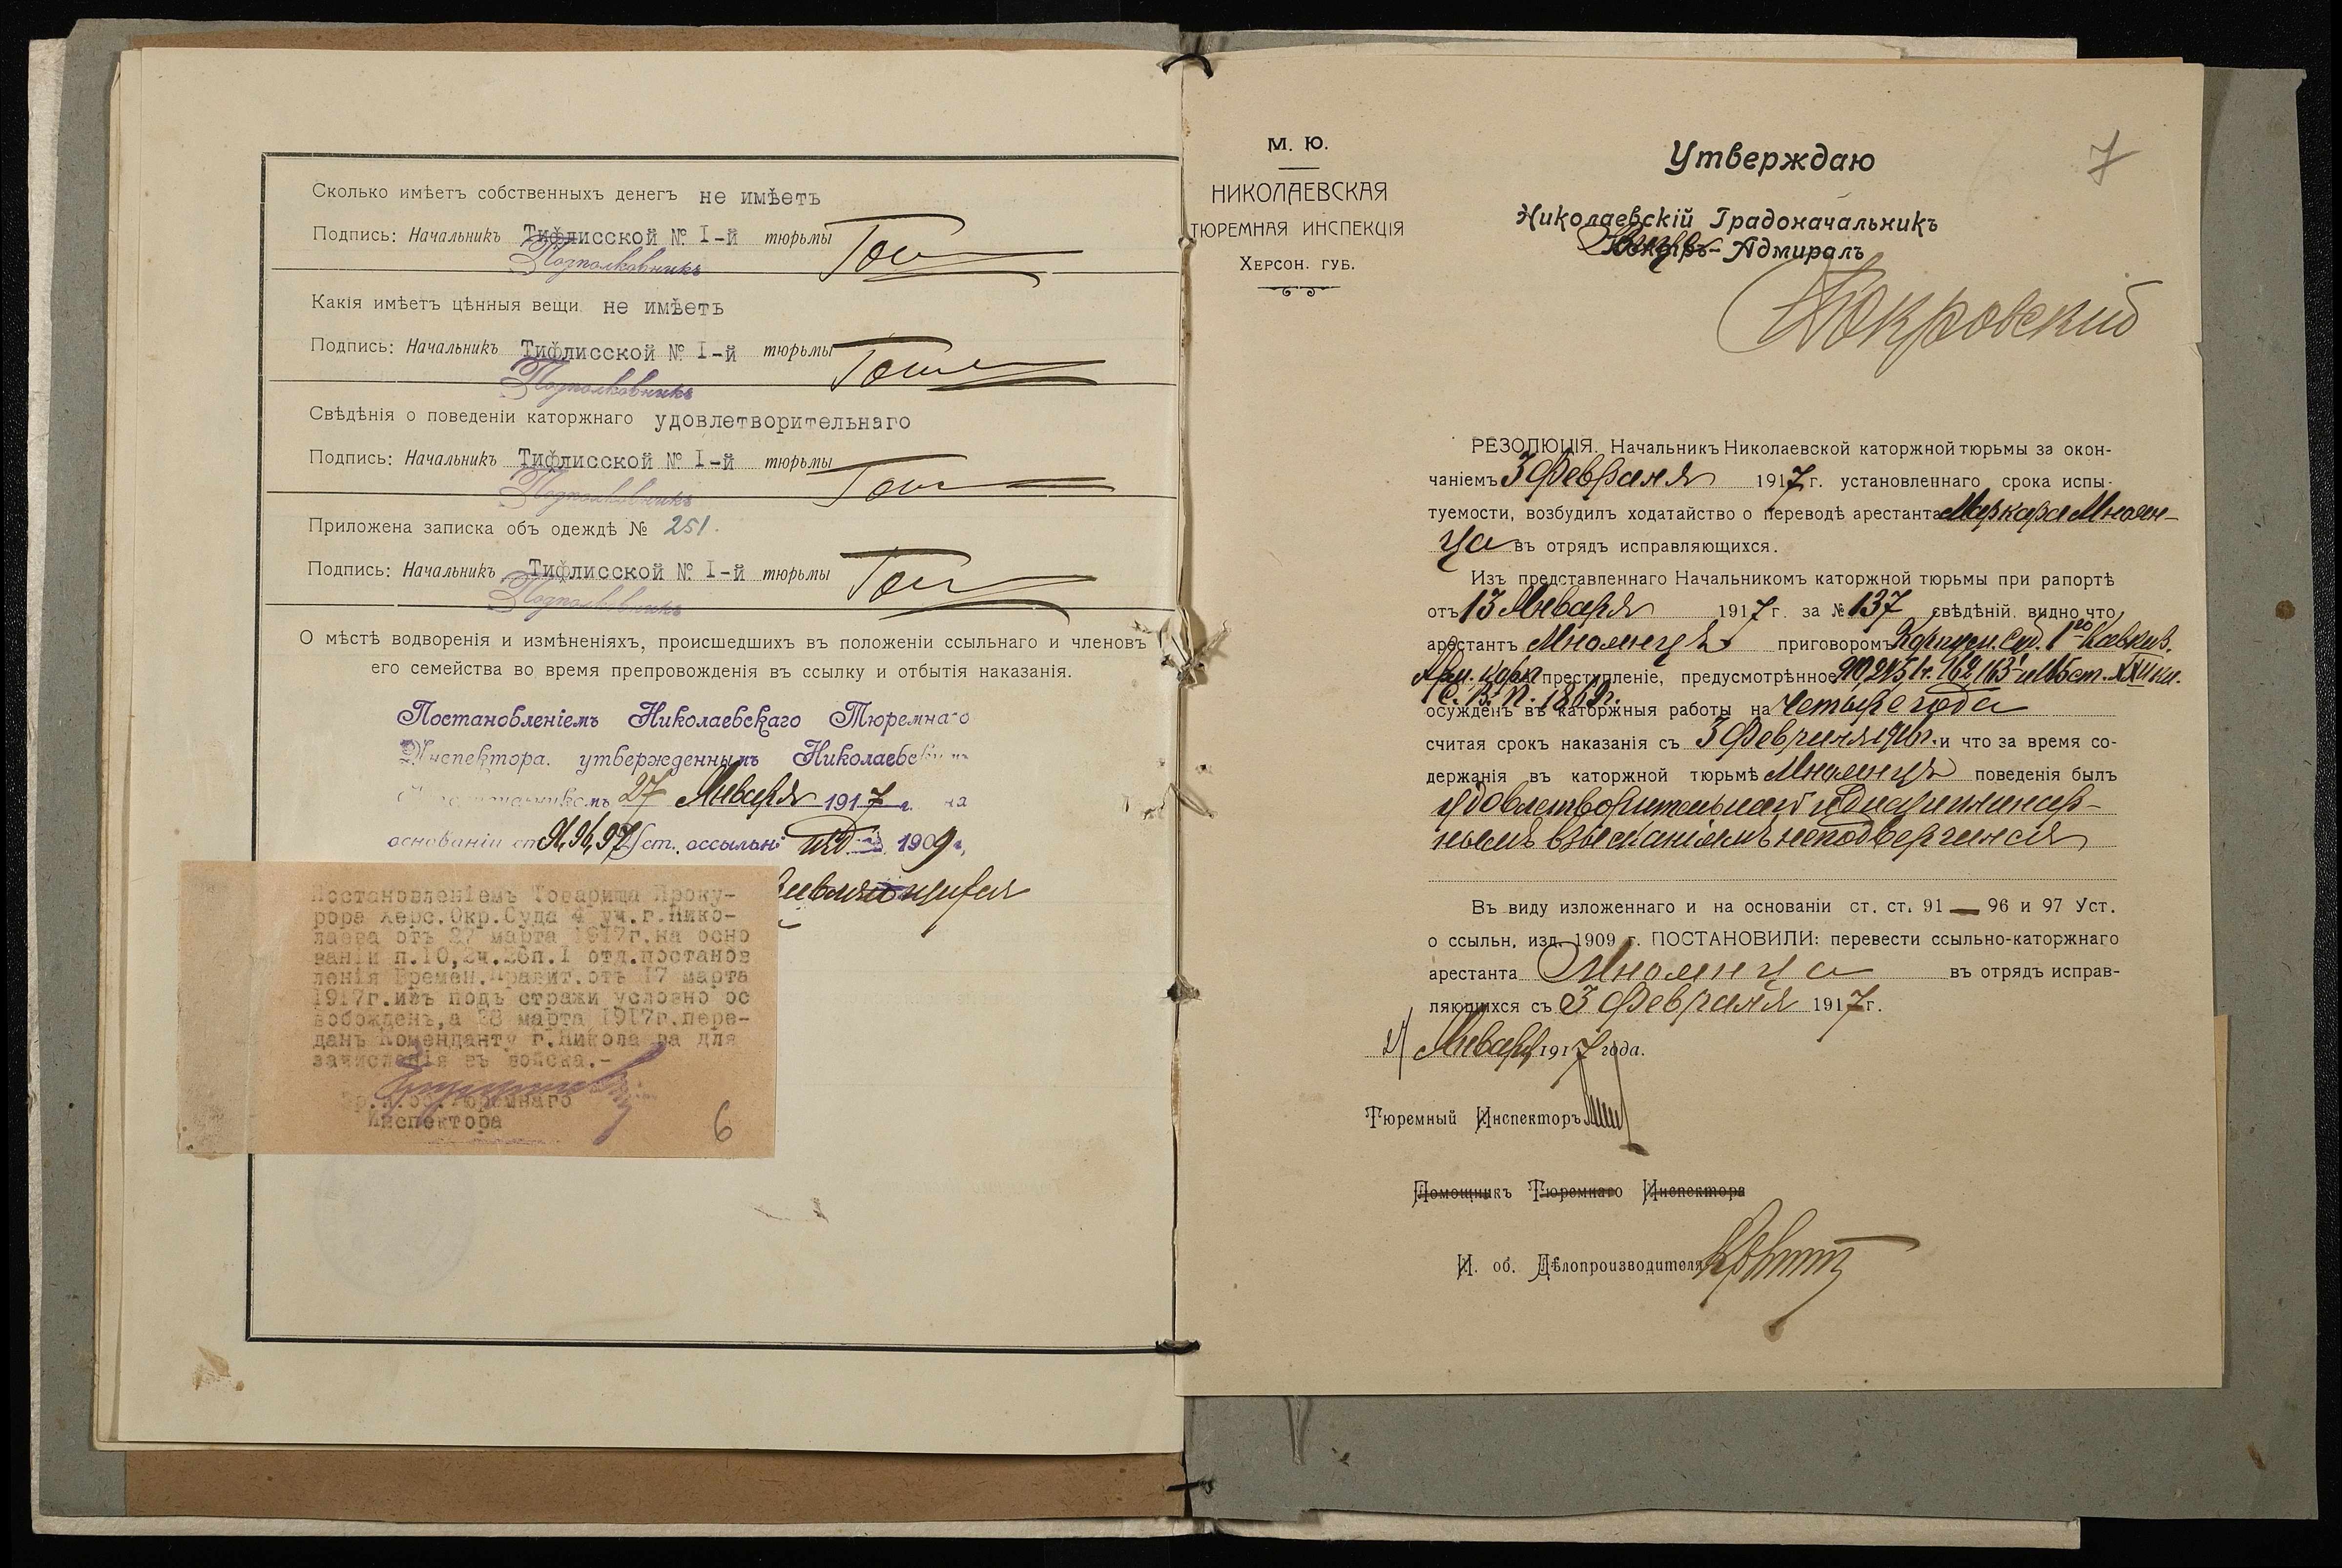 Сколько имѣетъ собственныхъ денегъ не имѣетъ
Подпись: Начальникъ Тифлисской № I-й тюрьмы
Подполковникъ
Какія имѣетъ цѣнныя вещи не имѣетъ
Подпись: Начальникъ Тифлисской № I-й тюрьмы
Подполковникъ
Свѣдѣнія о поведеніи каторжнаго удовлетворительнаго
Подпись: Начальникъ Тифлисской № I-й тюрьмы
Подполковникъ
Приложена записка объ одеждѣ № 251.
Подпись: Начальникъ Тифлисской № I-й тюрьмы
Подполковникъ
О мѣстѣ водворенія и измѣненіяхъ, происшедшихъ въ положеніи ссыльнаго и членовъ
его семейства во время препровожденія въ ссылку и отбытія наказанія.
Постановленіемъ Николаевскаго Тюремнаго
Инспектора, утвержденнымъ Николаевскимъ
27 Января 1917 г. на
основаніи ст. 91, 96, 97 уст. о ссыльн. изд. 1909 г.,
Постановленіемъ Товарища Проку-
рора Херс.Окр.Суда 4 уч.г.Нико-
лаева отъ 27 марта 1917г.на осно
ваніи п.10,2ч.26п.I отд.постанов
ленія Времен.Правит.отъ 17 марта
1917г.изъ подъ стражи условно ос
вобожденъ,а 28 марта 1917г.пере-
данъ Коменданту г.Никола ва для
зачисленія въ войска.-
Вр.и.об.Тюремнаго
Инспектора
6
М. Ю.
НИКОЛАЕВСКАЯ
ТЮРЕМНАЯ ИНСПЕКЦІЯ
ХЕРСОН. ГУБ.
Утверждаю
7
Николаевскій Градоначальникъ
Вице
Контръ-Адмиралъ
Покровский
РЕЗОЛЮЦІЯ. Начальникъ Николаевской каторжной тюрьмы за окон-
чаніемъ 3 Февраля 1917 г. установленнаго срока испы-
туемости, возбудилъ ходатайство о переводѣ арестанта Маркара Мнолян-
ца въ отрядъ исправляющихся.
Изъ представленнаго Начальникомъ каторжной тюрьмы при рапортѣ
отъ 13 Января 1917 г. за № 137 свѣдѣній видно, что
арестантъ Мнолянцъ приговоромъ Корпусн. Суд. 1го Кавказ.
Арм. корп преступленіе, предусмотрѣнное 162 ст. XXII кн.
С. В. П. 1869г.
осужденъ въ каторжныя работы на четыре года
считая срокъ наказанія съ 3 Февраля 1916г. и что за время со-
держанія въ каторжной тюрьмѣ Мнолянцъ поведенія былъ
удовлетворительнаго и дисциплинар-
нымъ взысканіямъ неподвергался
Въ виду изложеннаго и на основаніи ст. ст. 91 — 96 и 97 Уст.
о ссыльн. изд. 1909 г. ПОСТАНОВИЛИ: перевести ссыльно-каторжнаго
арестанта Мнолянца въ отрядъ исправ-
ляющихся съ 3 Февраля 1917г.
27 Января 1917 года.
Тюремный Инспекторъ
Помощникъ Тюремнаго Инспектора
И. об. Дѣлопроизводителя